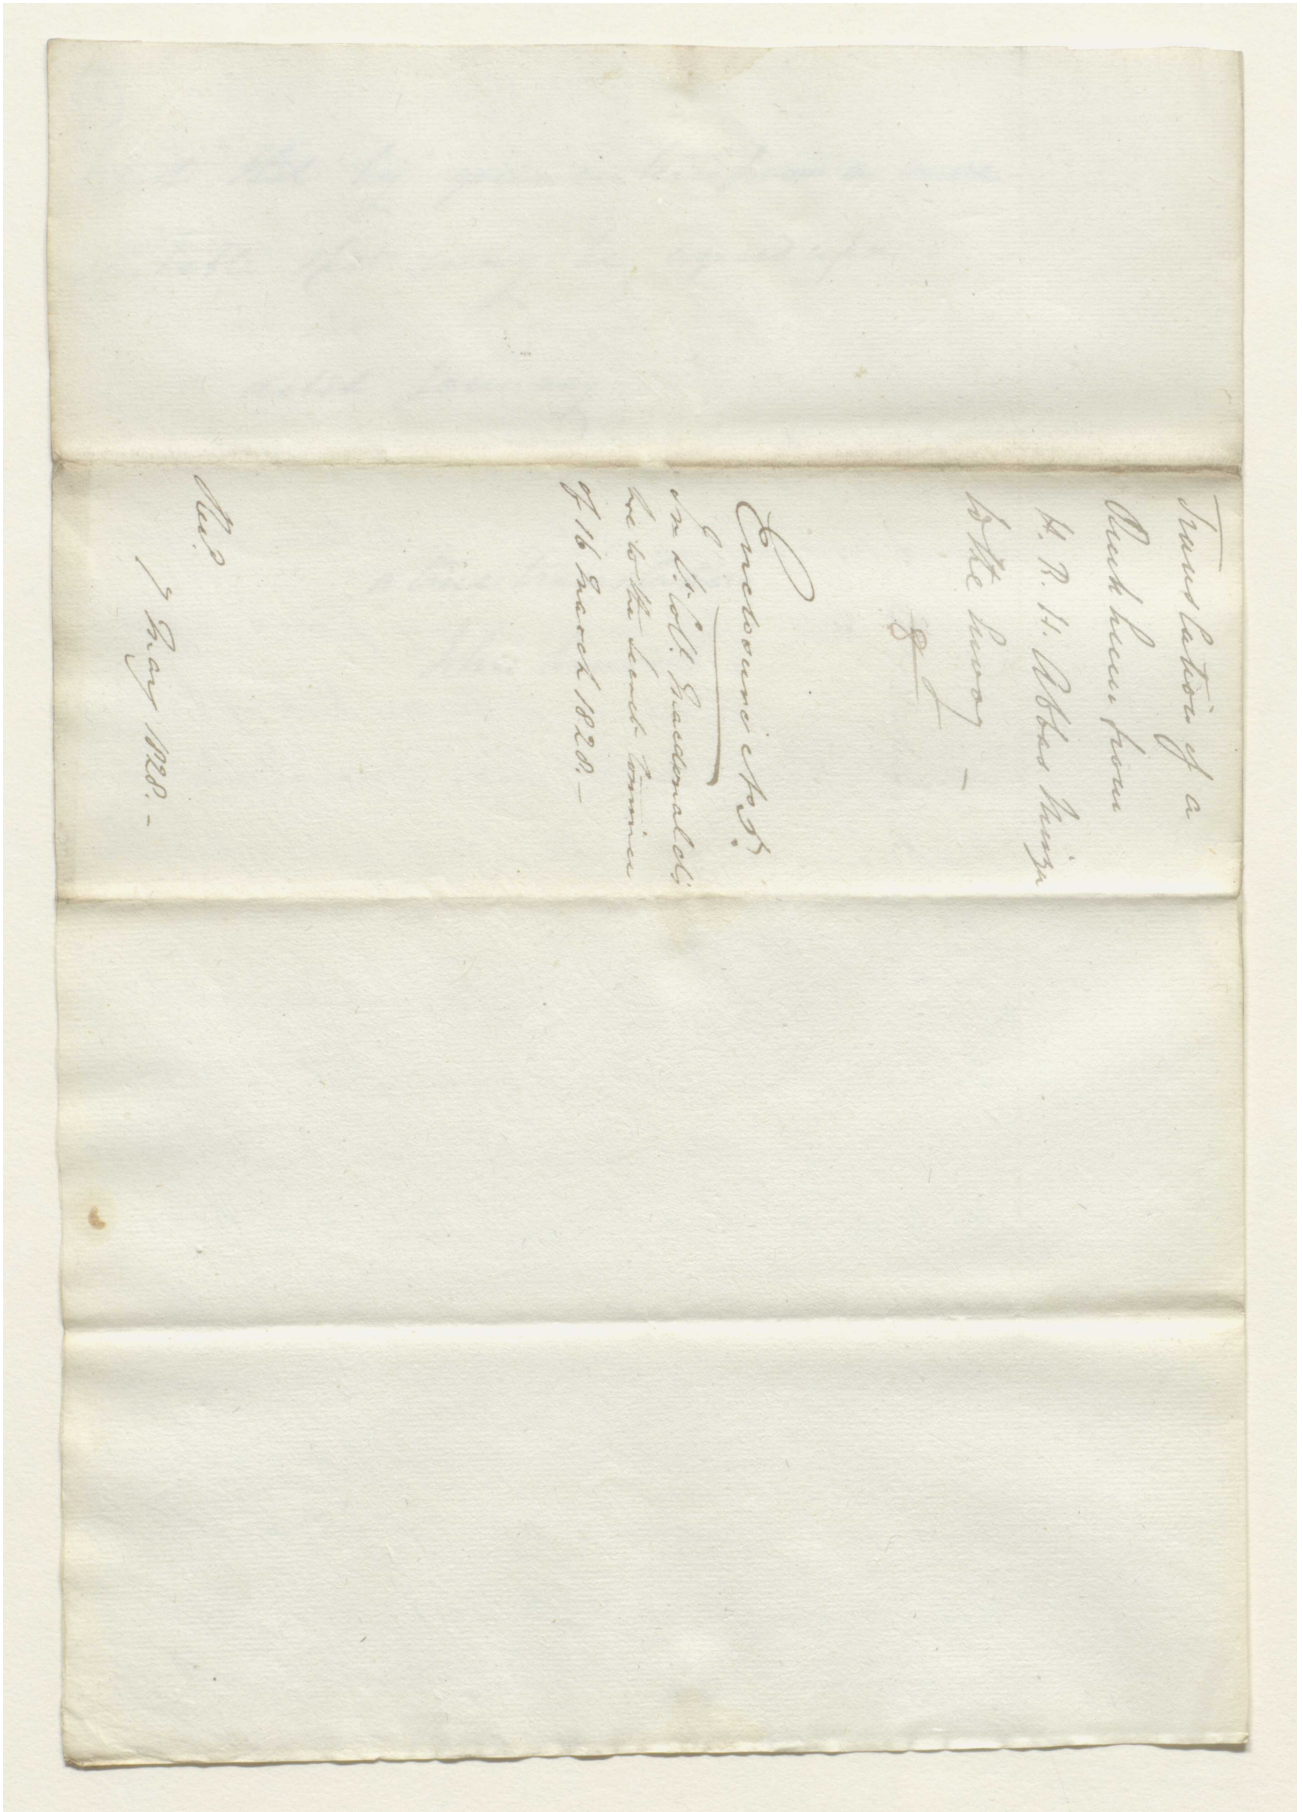 Translation of a
Rukhum from
H. R. H. Abbas Mirza
to the Envoy –
8
Enclosure No 8.
In Lt. Col. Macdonald's
Lre to the Secret Committee
of 16 March 1828. –
Recd
7 May 1828. –